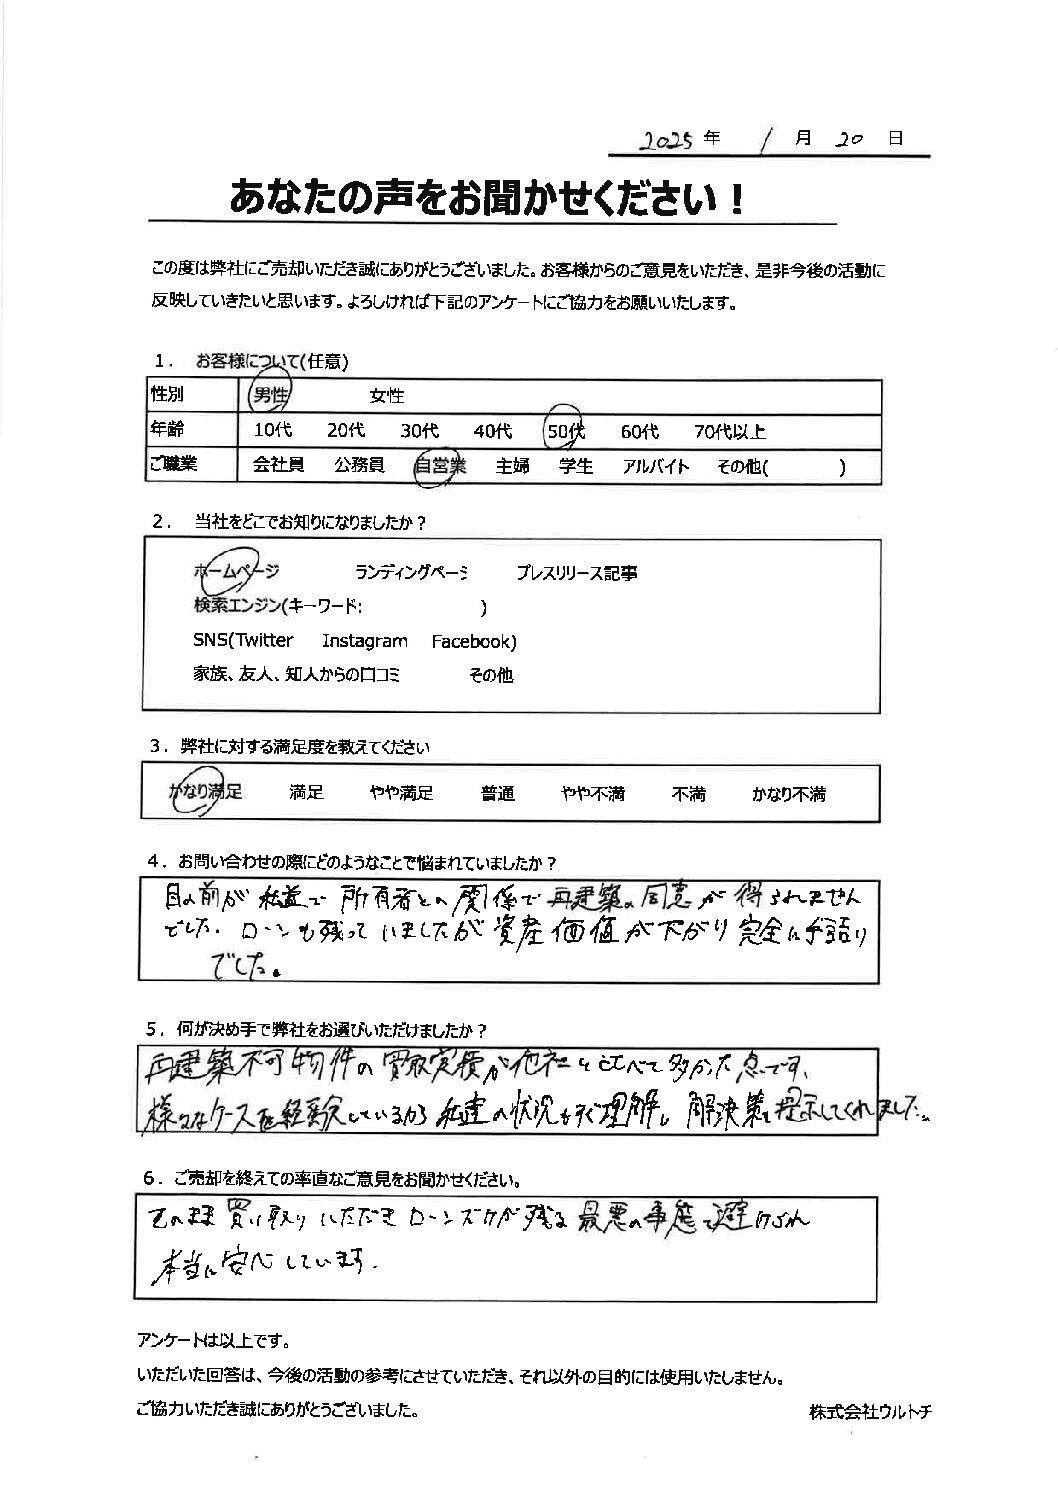 2025年 1月 20日
あなたの声をお聞かせください！
この度は弊社にご売却いただき誠にありがとうございました。お客様からのご意見をいただき、是非今後の活動に
反映していきたいと思います。よろしければ下記のアンケートにご協力をお願いいたします。
1. お客様について(任意)
性別 男性 女性
年齢 10代 20代 30代 40代 50代 60代 70代以上
ご職業 会社員 公務員 自営業 主婦 学生 アルバイト その他( )
2. 当社をどこでお知りになりましたか？
ホームページ ランディングページ プレスリリース記事
検索エンジン(キーワード: )
SNS(Twitter Instagram Facebook)
家族、友人、知人からの口コミ その他
3. 弊社に対する満足度を教えてください
かなり満足 満足 やや満足 普通 やや不満 不満 かなり不満
4. お問い合わせの際にどのようなことで悩まれていましたか？
目の前が私道で所有者との関係で再建築の同意が得られません
でした。ローンも残っていましたが資産価値が下がり完全に手詰り
でした。
5. 何が決め手で弊社をお選びいただけましたか？
再建築不可物件の買取実績が他社と比べて多かった点です、
様々なケースを経験しているから私道の状況もすぐ理解し解決策を提示してくれました。
6. ご売却を終えての率直なご意見をお聞かせください。
そのまま買い取りいただきローンだけが残る最悪の事態を避けられ
本当に安心しています.
アンケートは以上です。
いただいた回答は、今後の活動の参考にさせていただき、それ以外の目的には使用いたしません。
ご協力いただき誠にありがとうございました。
株式会社ウルトチ